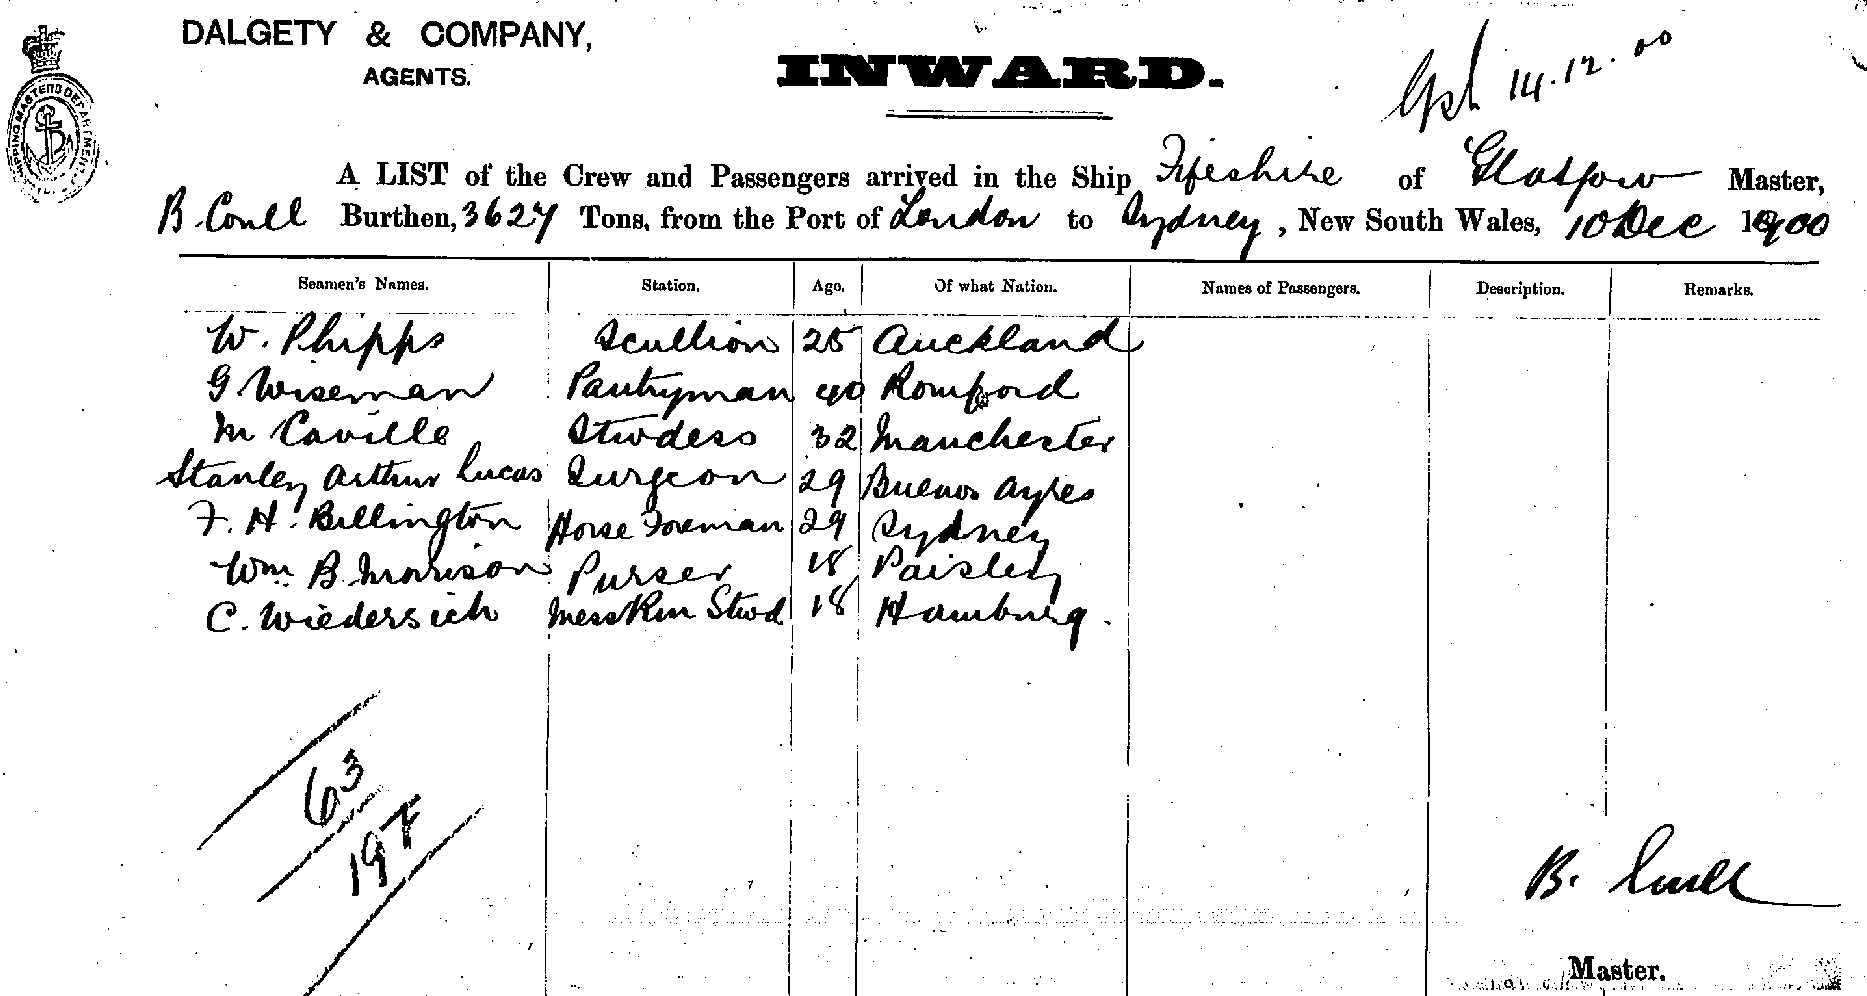 DALGETY & COMPANY,
AGENTS.
INWARD.
14.12.00
SHIPPING MASTERS DEPARTMENT
A LIST of the Crew and Passengers arrived in the Ship Fifeshire of Glasgow Master,
B. Conll Burthen, 3627 Tons, from the Port of London to Sydney, New South Wales, 10 Dec 1900
Seamen's Names. Station. Age. Of what Nation. Names of Passengers. Description. Remarks.
W. Phipps Scullion 25 Auckland
G Wiseman Pantryman 40 Romford
M Caville Stwdess 32 Manchester
Stanley Arthur Lucas Surgeon 29 Buenos Ayres
F. H. Billington Horse Foreman 29 Sydney
Wm. B. Morrison Purser 18 Paisley
C. Wiedersich MessRm Stwd 18 Hamburg.
63
197
B.
Master.